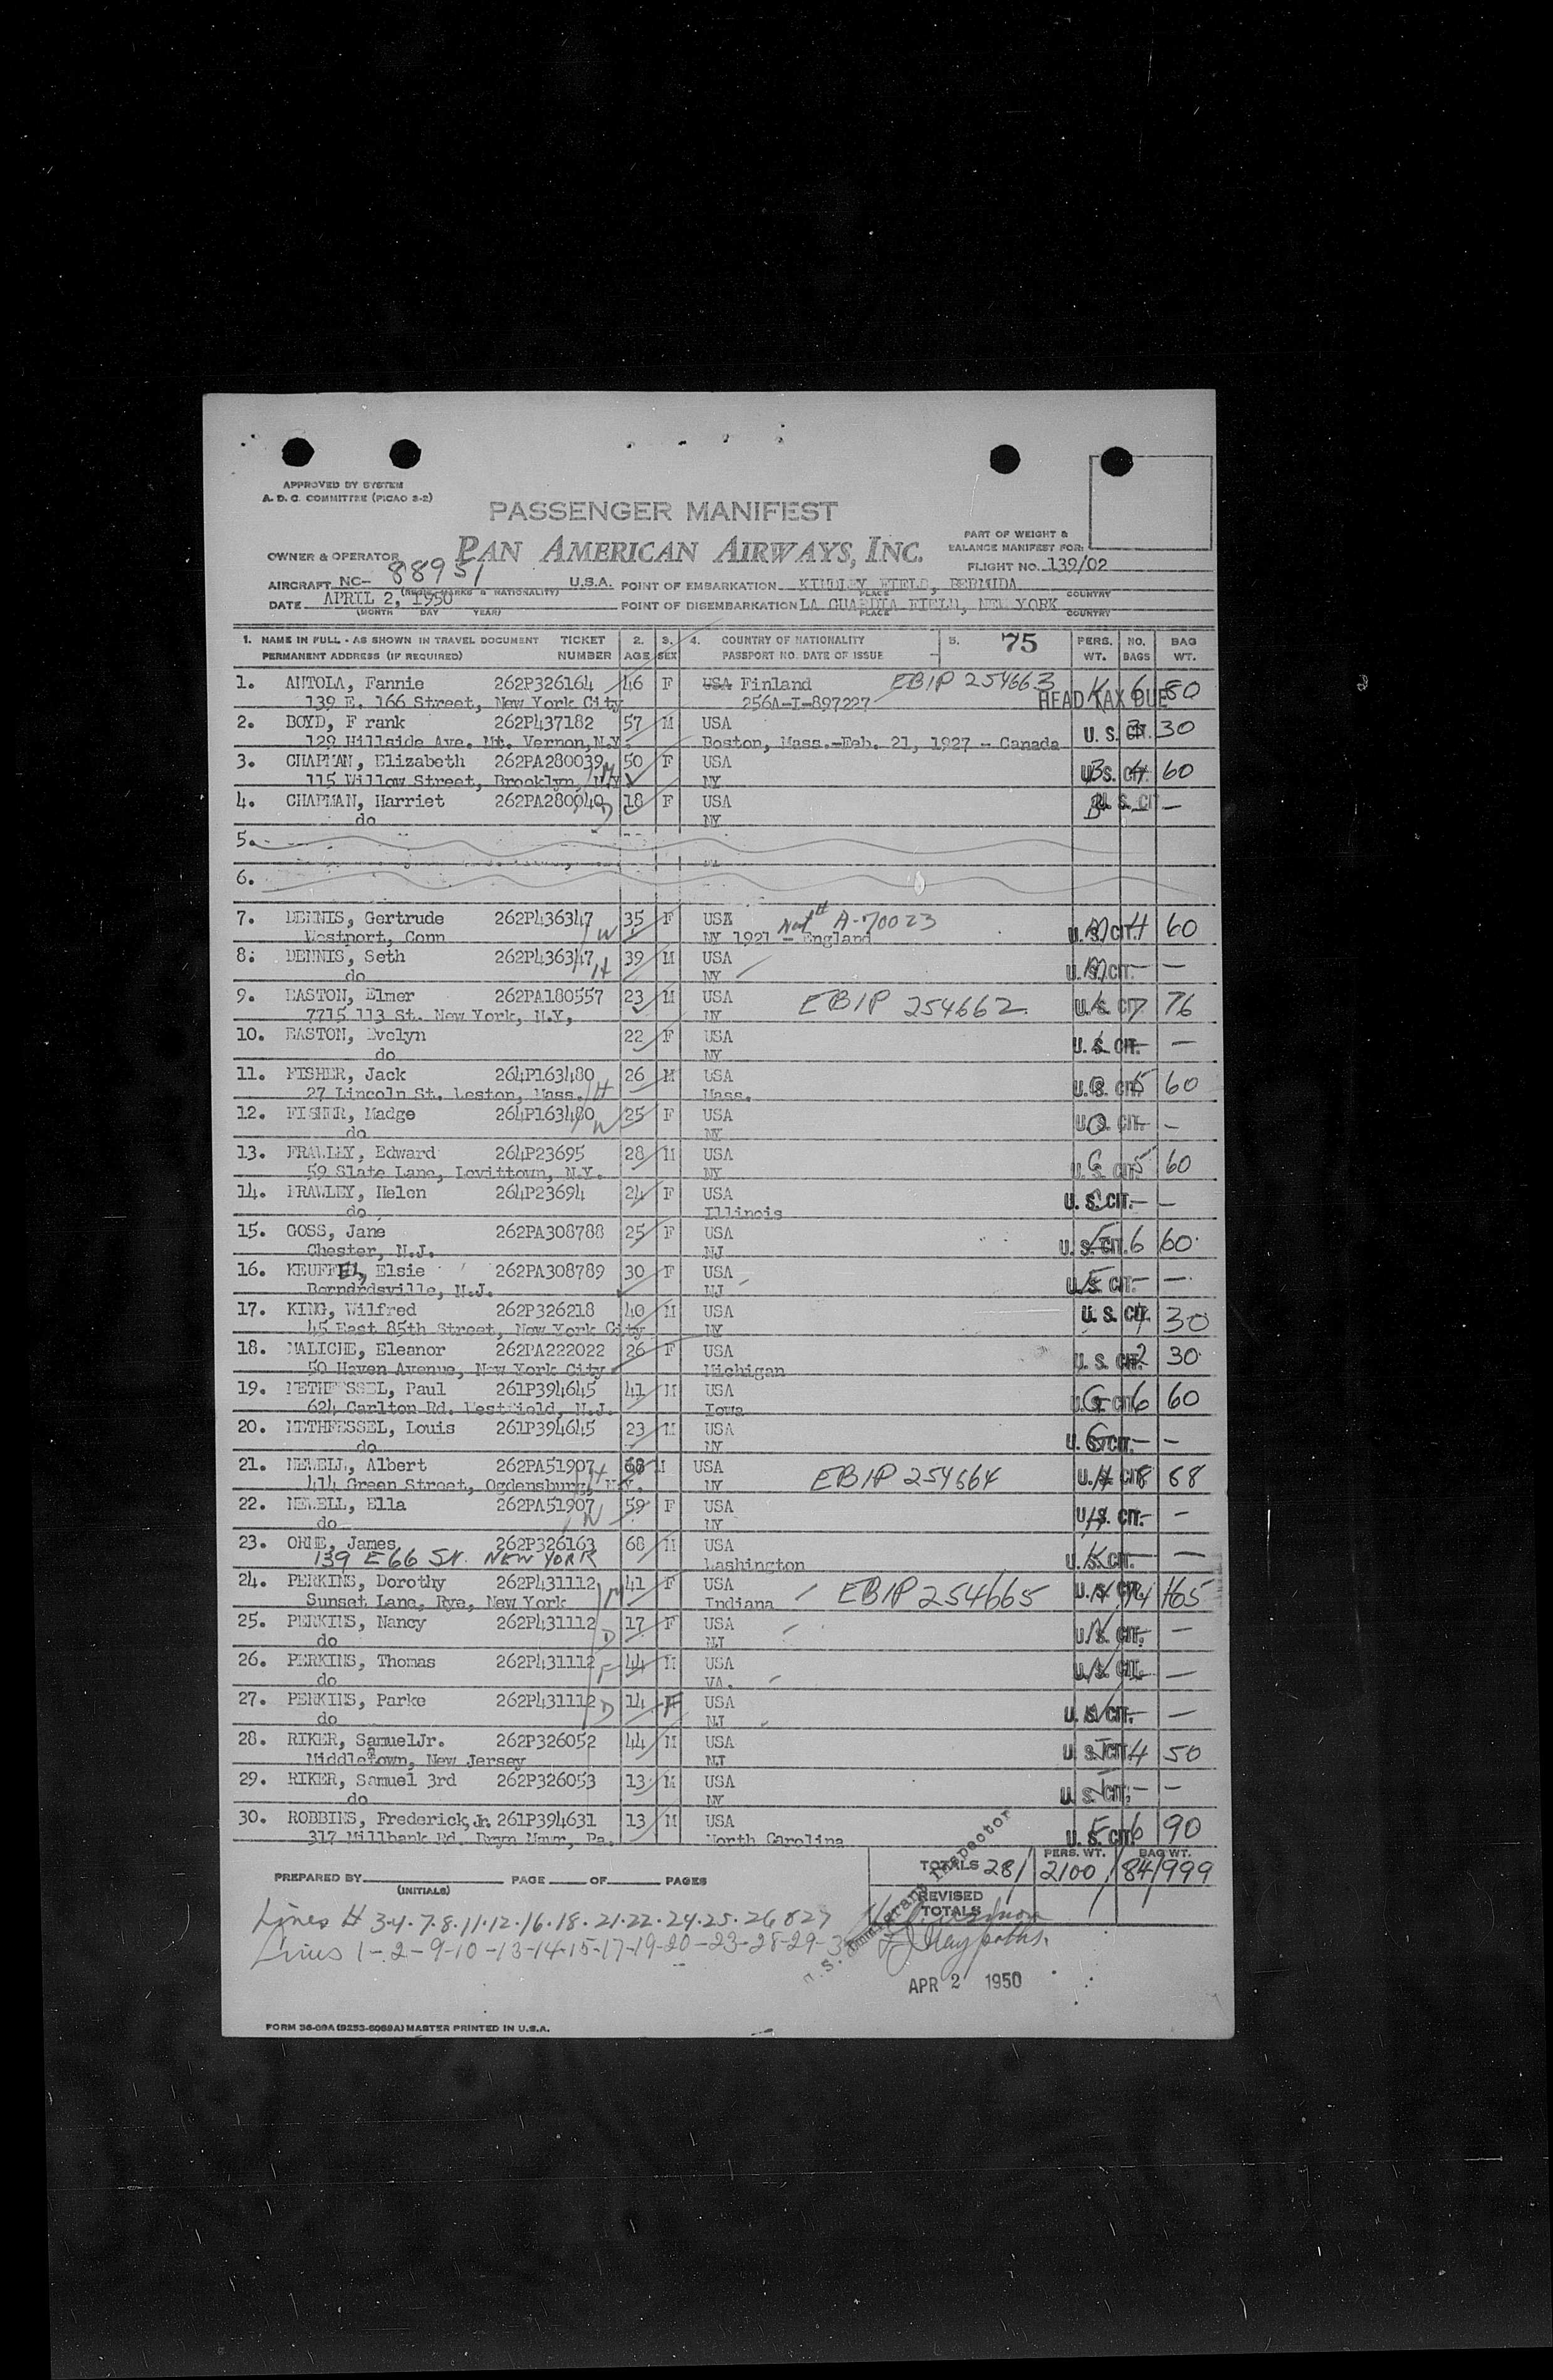 APPROVED BY SYSTEM
A. D. C. COMMITTEE (PICAO 2-2)
PASSENGER MANIFEST
PART OF WEIGHT &
BALANCE MANIFEST FOR:
OWNER & OPERATOR PAN AMERICAN AIRWAYS, INC.
FLIGHT NO. 139/02
AIRCRAFT NC- 88951 U.S.A. POINT OF EMBARKATION KINDLEY FIELD, BERMUDA
(REGIS. MARKS & NATIONALITY) PLACE COUNTRY
DATE APRIL 2, 1950 POINT OF DISEMBARKATION LA GUARDIA FIELD, NEW YORK
(MONTH DAY YEAR) PLACE COUNTRY
1. NAME IN FULL - AS SHOWN IN TRAVEL DOCUMENT TICKET 2. 3. 4. COUNTRY OF NATIONALITY 5. 75 PERS. NO. BAG
PERMANENT ADDRESS (IF REQUIRED) NUMBER AGE SEX PASSPORT NO. DATE OF ISSUE WT. BAGS WT.
1. ANTOLA, Fannie 262P326164 46 F USA Finland EBIP 254663 K 6 80
139 E. 166 Street, New York City 256A-I-897227 HEAD TAX DUE
2. BOYD, F rank 262P437182 57 M USA U. S. CIT. 30
129 Hillside Ave. Mt. Vernon, N.Y. Boston, Mass.-Feb. 21, 1927 - Canada
3. CHAPMAN, Elizabeth 262PA280039 M 50 F USA U. S. CIT. B 4 60
115 Willow Street, Brooklyn, NY NY
4. CHAPMAN, Harriet 262PA280040 D 18 F USA U. S. CIT B - -
do NY
5.
6.
7. DENNIS, Gertrude 262P436347 W 35 F USA Nat A-70023 U. S. CIT. M 4 60
Westport, Conn NY 1921 - England
8. DENNIS, Seth 262P436347 H 39 M USA U. S. CIT. M - -
do NY
9. EASTON, Elmer 262PA180557 23 M USA EBIP 254662 U. S. CIT. L 7 76
7715 113 St. New York, N.Y, NY
10. EASTON, Evelyn 22 F USA U. S. CIT. L - -
do NY
11. FISHER, Jack 264P163480 H 26 M USA U. S. CIT. O 5 60
27 Lincoln St. Weston, Mass. Mass.
12. FISHER, Madge 264P163480 W 25 F USA U. S. CIT. O - -
do NY
13. FRAWLEY, Edward 264P23695 28 M USA U. S. CIT. C 5 60
59 Slate Lane, Levittown, N.Y. NY
14. FRAWLEY, Helen 264P23694 24 F USA U. S. CIT. C - -
do Illinois
15. GOSS, Jane 262PA308788 25 F USA U. S. CIT. F 6 60
Chester, N.J. NJ
16. KEUFFEL, Elsie 262PA308789 30 F USA U. S. CIT. F - -
Bernardsville, N.J. NJ
17. KING, Wilfred 262P326218 40 M USA U. S. CIT. 30
45 East 85th Street, New York City NY
18. MALICHE, Eleanor 262PA222022 26 F USA U. S. CIT. 2 30
50 Haven Avenue, New York City Michigan
19. METHFESSEL, Paul 261P394645 41 M USA U. S. CIT. G 6 60
624 Carlton Rd. Westfield, N.J. Iowa
20. METHFESSEL, Louis 261P394645 23 M USA U. S. CIT. G - -
do NY
21. NEWELL, Albert 262PA51907 H 68 M USA EBIP 254664 U. S. CIT. H 8 68
414 Green Street, Ogdensburg, N.Y. NY
22. NEWELL, Ella 262PA51907 W 59 F USA U. S. CIT. H - -
do NY
23. ORME, James 262P326163 68 M USA U. S. CIT. K - -
139 E 66 St. NEW YORK Washington
24. PERKINS, Dorothy 262P431112 M 41 F USA EBIP 254665 U. S. CIT. N 14 165
Sunset Lane, Rye, New York Indiana
25. PERKINS, Nancy 262P431112 D 17 F USA U. S. CIT. N - -
do NJ
26. PERKINS, Thomas 262P431112 F 44 M USA U. S. CIT. N - -
do VA.
27. PERKINS, Parke 262P431112 D 14 F USA U. S. CIT. N - -
do NJ
28. RIKER, SamuelJr. 262P326052 44 M USA U. S. CIT. J 4 50
Middletown, New Jersey NJ
29. RIKER, Samuel 3rd 262P326053 13 M USA U. S. CIT. J - -
do NY
30. ROBBINS, Frederick, Jr. 261P394631 13 M USA U. S. CIT. E 6 90
317 Millbank Rd. Bryn Mawr, Pa. North Carolina
PERS. WT. BAG WT.
TOTALS 28 2100 84 999
PREPARED BY PAGE OF PAGES
(INITIALS)
REVISED
TOTALS
Lines # 3-4-7-8-11-12-16-18-21-22-24-25-26 & 27
Lines 1-2-9-10-13-14-15-17-19-20-23-28-29-30
U. S. Immigrant Inspector
APR 2 1950
FORM 36-09A (9253-6069A) MASTER PRINTED IN U.S.A.